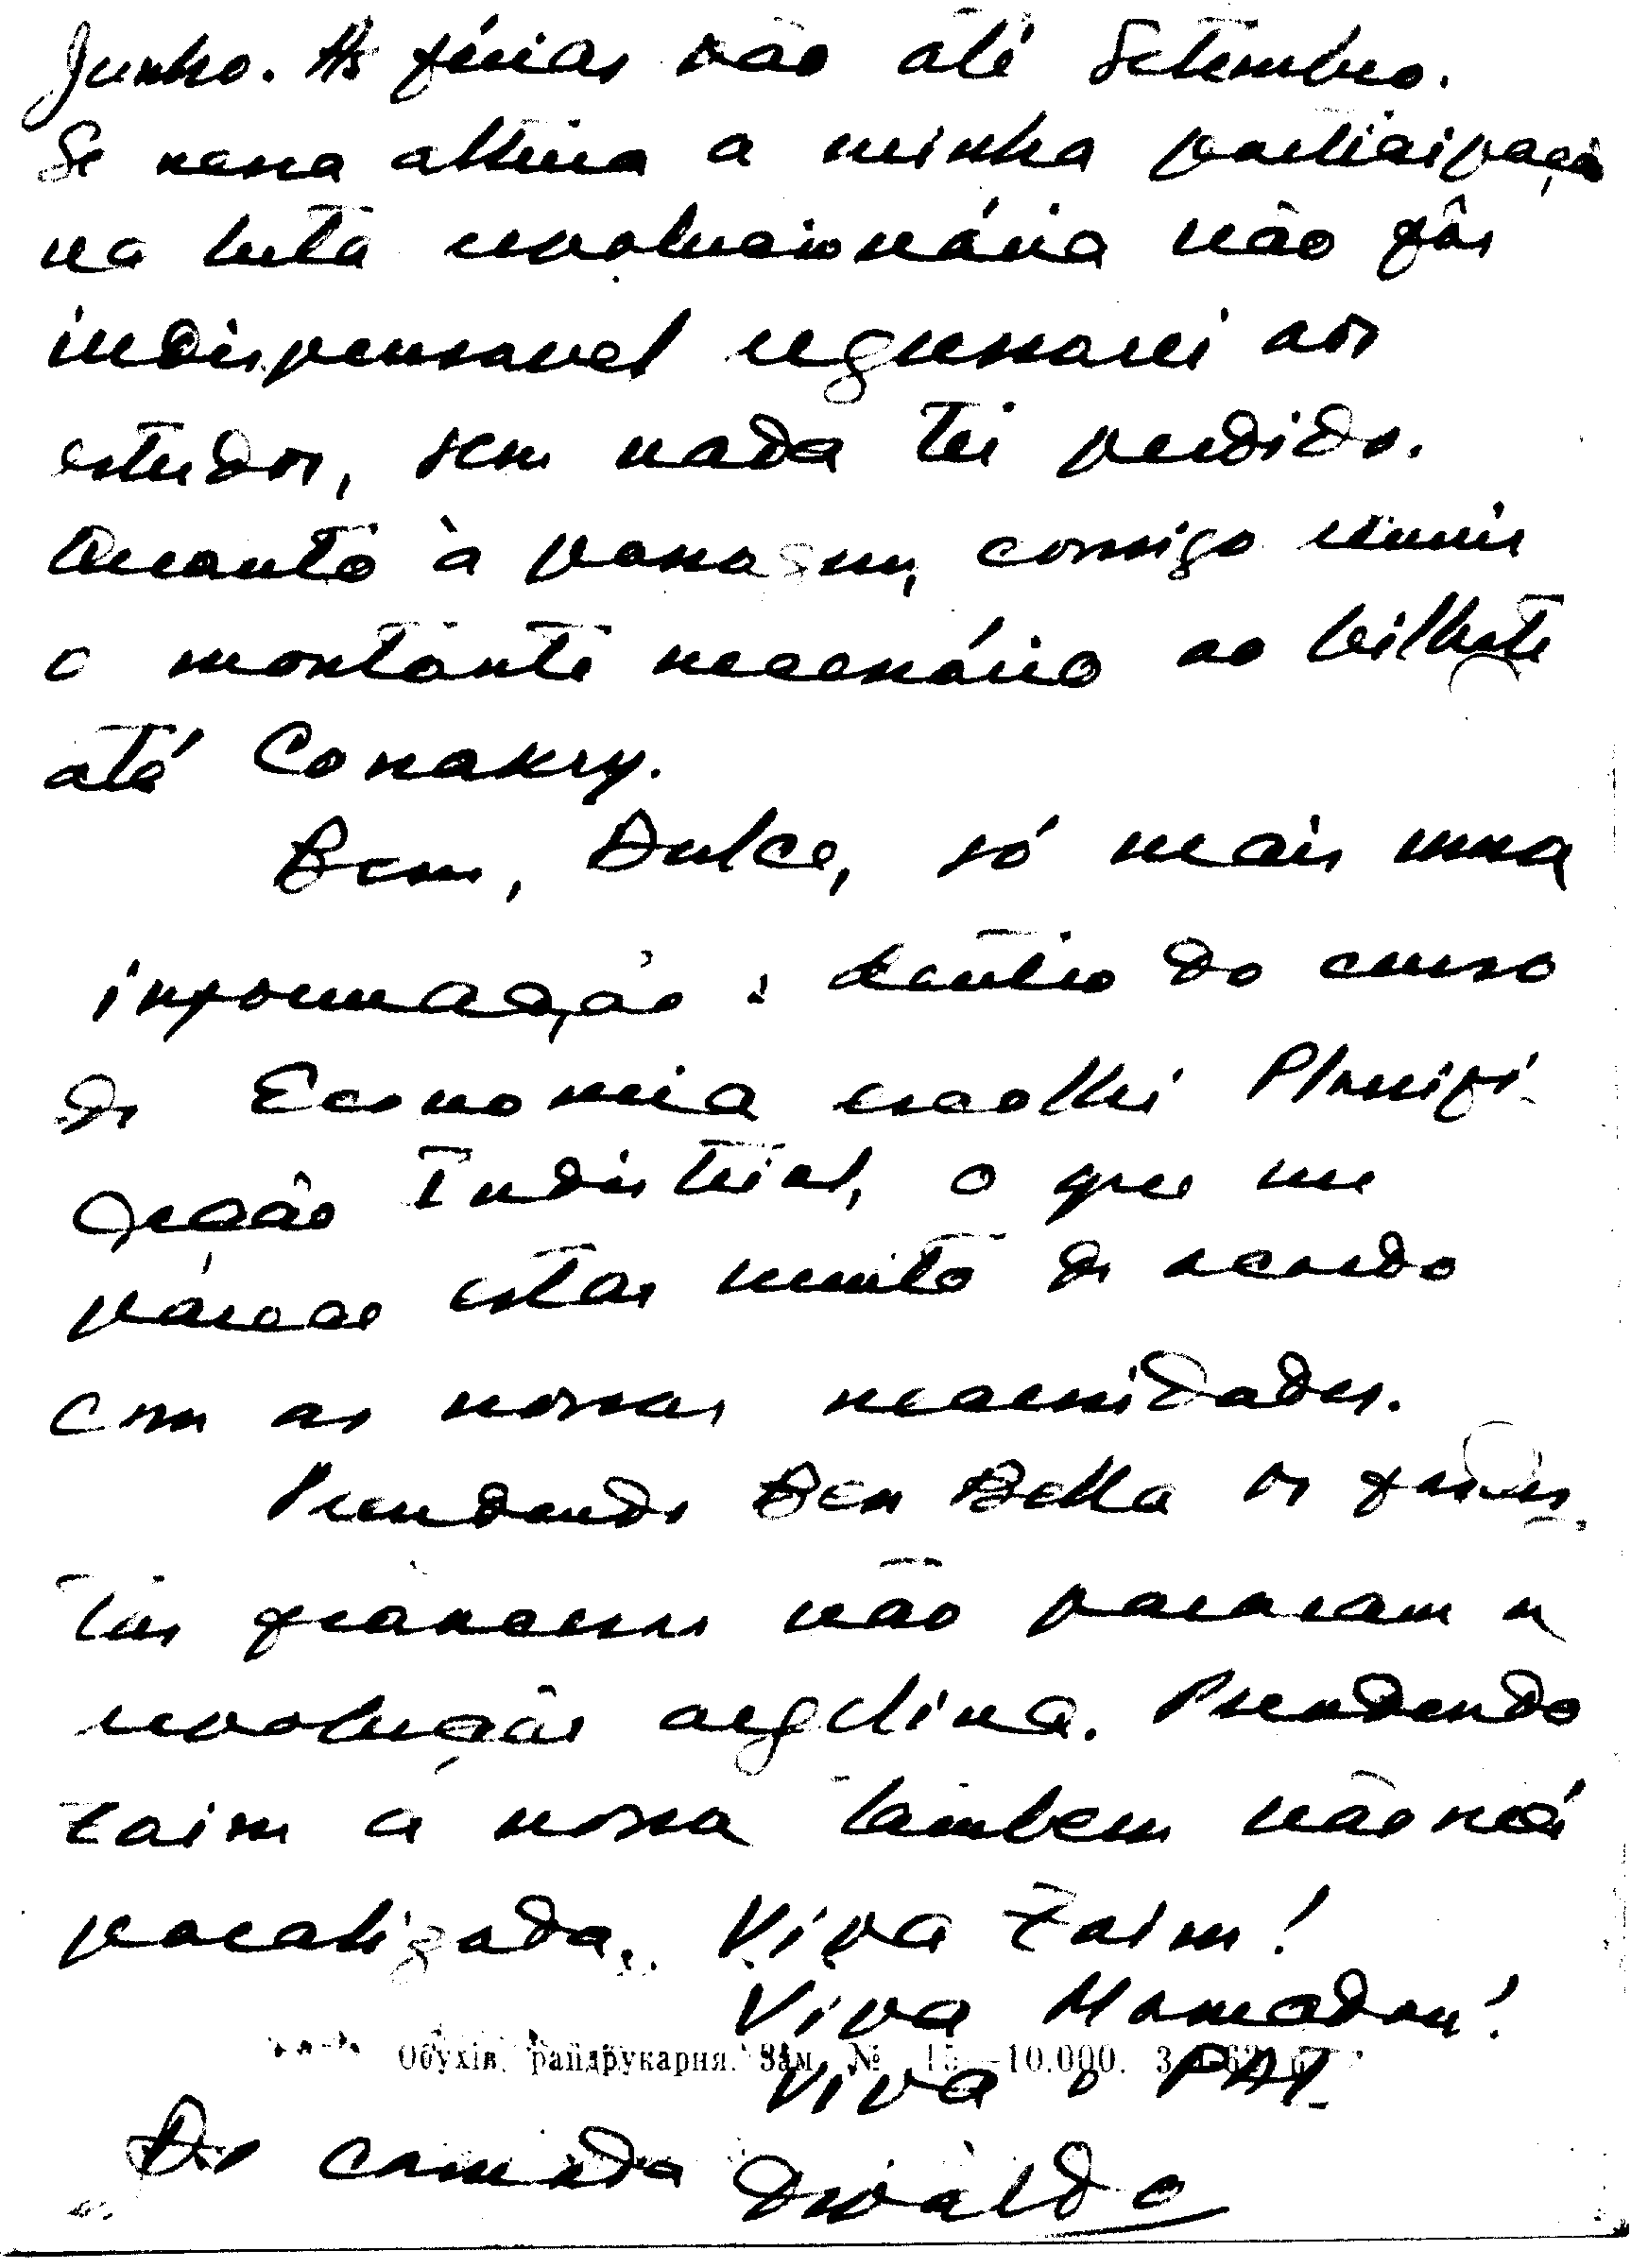 Junho. As férias vão até Setembro.
Se nessa altura a minha participação
na luta revolucionária não fôr
indispensavel regressarei aos
estudos, sem nada ter perdido.
Quanto à passagem, consigo reunir
o montante necessário ao bilhete
até Conakry.
Bem, Dulce, só mais uma
informação: dentro do curso
de Economia escolhi Planifi-
cação Industrial, o que me
parece estar muito de acordo
com as nossas necessidades.
Prendendo Ben Bella os fascis-
tas franceses não pararam a
revolução argelina. Prendendo
Zaim a nossa tambem não será
paralizada. Viva Zaim!
Viva Mamadou!
Обухів. райдрукарня. Зам. № 15—10.000.
Viva o PAI
Do camarada Osvaldo